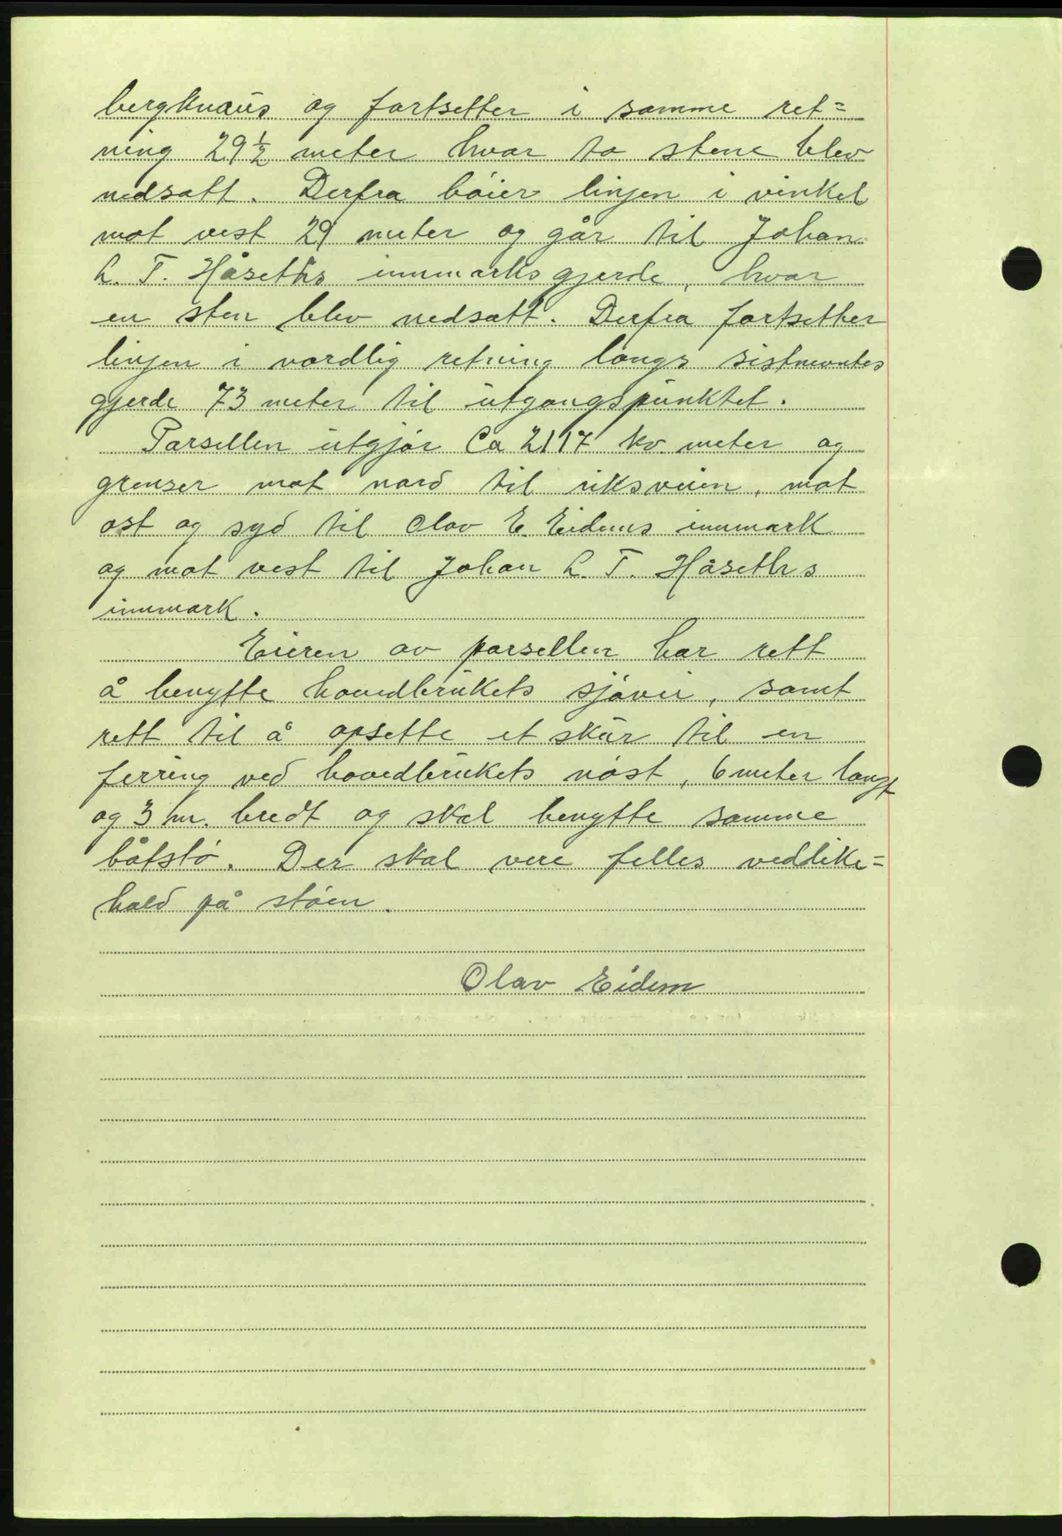 bergknaus og fortsetter i samme ret=
ning 29½ meter hvor to stene blev
nedsatt. Derfra bøier linjen i vinkel
mot vest 29 meter og går til Johan
L. T. Håseths innmarks gjerde, hvor
en sten blev nedsatt. Derfra fortsetter
linjen i nordlig retning langs sistnevntes
gjerde 73 meter til utgangspunktet.
Parsellen utgjør Ca 2117 kv. meter og
grenser mot nord til riksveien, mot
øst og syd til Olav E. Eidems innmark
og mot vest til Johan L. T. Håseths
innmark.
Eieren av parsellen har rett
å benytte hovedbrukets sjøvei, samt
rett til å opsette et skur til en
færing ved hovedbrukets nøst, 6 meter langt
og 3 m. bredt og skal benytte samme
båtstø. Der skal være felles vedlike=
hold på støen.
Olav Eidem